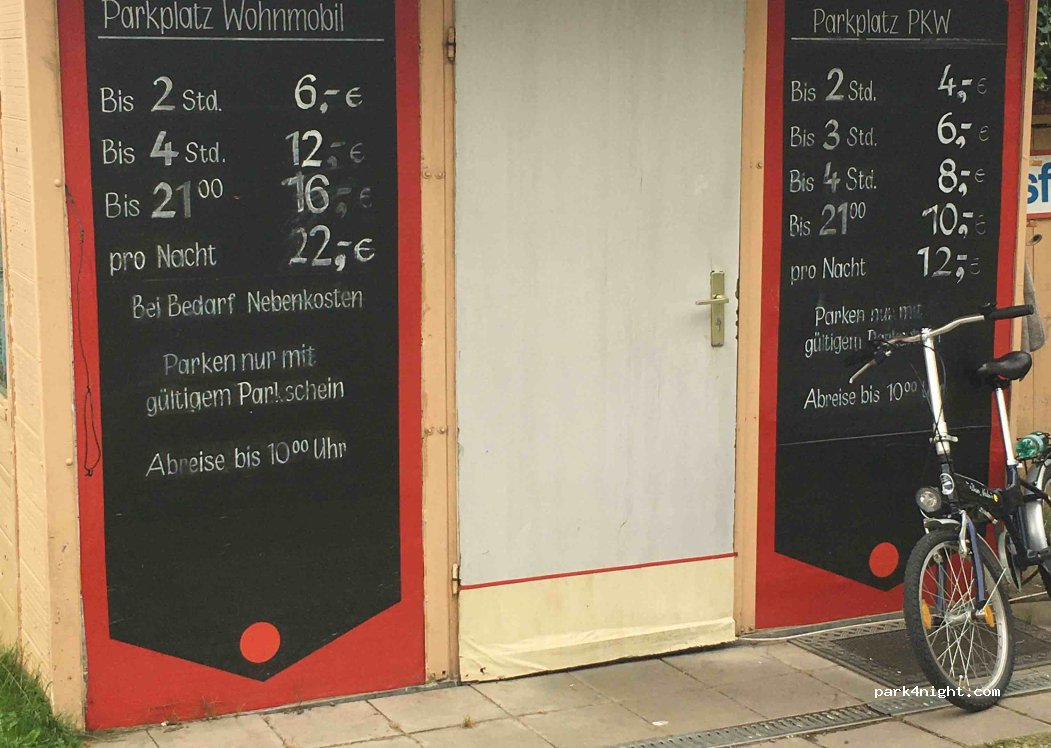 Parkplatz Wohnmobil
Bis 2 Std. 6,-€
Bis 4 Std. 12,-€
Bis 21⁰⁰ 16,-€
pro Nacht 22,-€
Bei Bedarf Nebenkosten
Parken nur mit
gültigem Parkschein
Abreise bis 10⁰⁰ Uhr
Parkplatz PKW
Bis 2 Std. 4,-€
Bis 3 Std. 6,-€
Bis 4 Std. 8,-€
Bis 21⁰⁰ 10,-€
pro Nacht 12,-€
Parken nur mit
gültigem
Abreise bis 10⁰⁰
sf
park4night.com